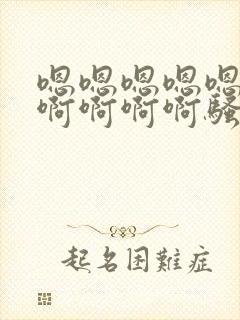 嗯嗯嗯嗯嗯
啊啊啊啊骚
起名困難症